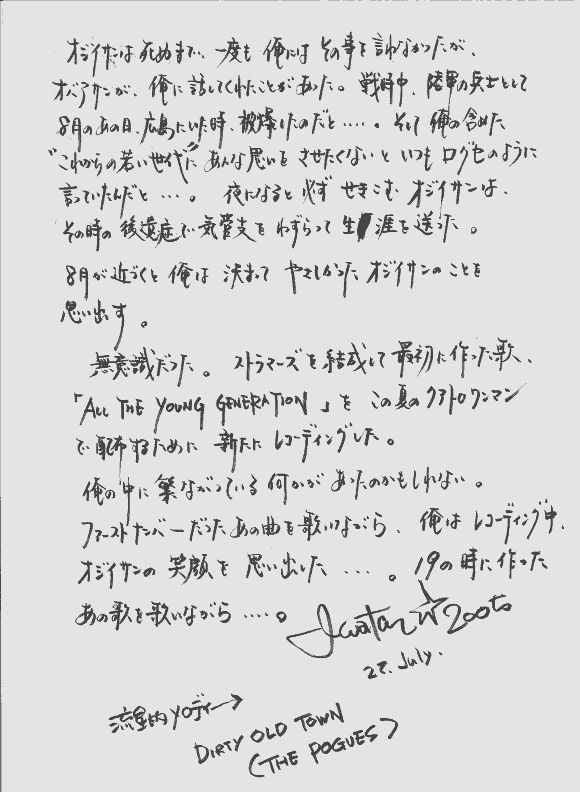 オジイサンは死ぬまで、一度も俺にはその事を言わなかったが、
オバアサンが、俺に話してくれたことがあった。戦時中、陸軍の兵士として
8月のあの日、広島にいた時、被爆したのだと‥‥。そして俺の含めた
"これからの若い世代に"あんな思いをさせたくないといつもログセのように
言っていたんだと‥‥。夜になると必ずせきこむオジイサンは、
その時の後遺症で気管支をわずらって生涯を送った。
8月が近づくと俺は決まってやさしかったオジイサンのことを
思い出す。
無意識だった。ストラマーズを結成して最初に作った歌、
「ALL THE YOUNG GENERATION」をこの夏のクアトロワンマン
で配布するために新たにレコーディングした。
俺の中に繋ながっている何かがあったのかもしれない。
ファーストナンバーだったあの曲を歌いながら、俺はレコーディング中、
オジイサンの笑顔を思い出した‥‥。19の時に作った
あの歌を歌いながら‥‥。
27. July.
流星的メロディー→
DIRTY OLD TOWN
(THE POGUES)